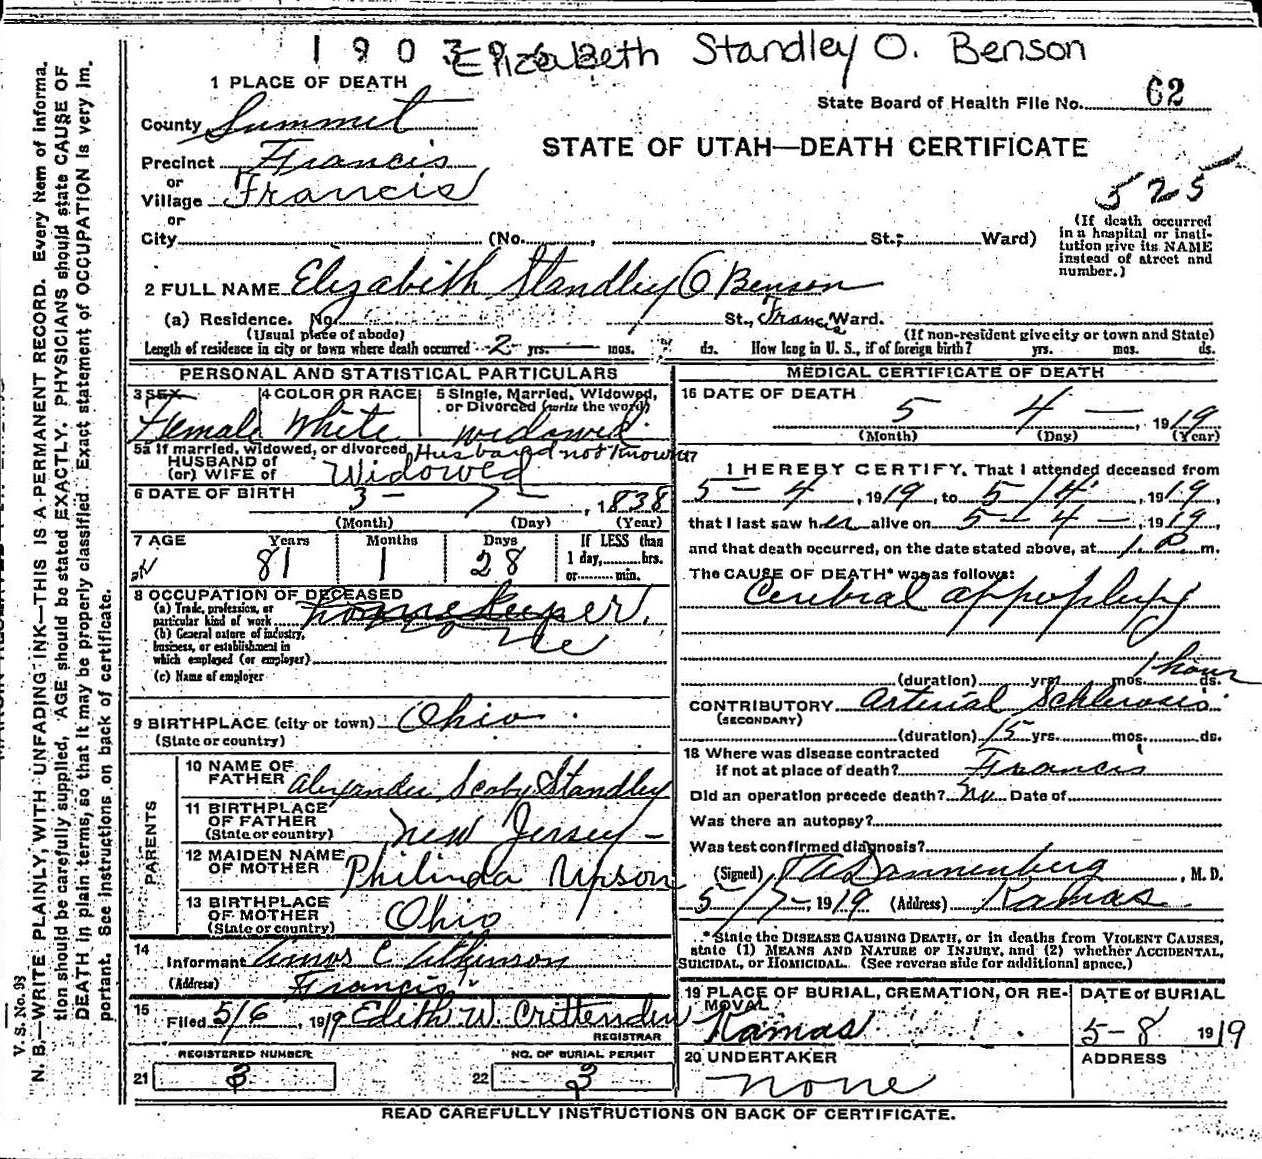 1903 Elizabeth Standley O. Benson
1 PLACE OF DEATH
State Board of Health File No. 62
County Summit
STATE OF UTAH—DEATH CERTIFICATE
Precinct Francis
or
Village Francis
525
or
City (No. , St.; Ward)
(If death occurred in a hospital or institution give its NAME instead of street and number.)
2 FULL NAME Elizabeth Standley O Benson
(a) Residence. No. St., Francis Ward.
(Usual place of abode) (If non-resident give city or town and State)
Length of residence in city or town where death occurred 2 yrs. — mos. ds. How long in U. S., if of foreign birth? yrs. mos. ds.
PERSONAL AND STATISTICAL PARTICULARS
3 SEX 4 COLOR OR RACE 5 Single, Married, Widowed, or Divorced (write the word)
Female White widowed
5a If married, widowed, or divorced Husband not known
HUSBAND of
(or) WIFE of Widowed
6 DATE OF BIRTH 3 — 7 — , 1838
(Month) (Day) (Year)
7 AGE Years Months Days If LESS than
81 1 28 1 day, hrs.
or min.
8 OCCUPATION OF DECEASED
(a) Trade, profession, or particular kind of work housekeeper.
(b) General nature of industry, business, or establishment in which employed (or employer) none
(c) Name of employer
9 BIRTHPLACE (city or town) Ohio
(State or country)
PARENTS
10 NAME OF FATHER Alexander Scoby Standley
11 BIRTHPLACE OF FATHER New Jersey —
(State or country)
12 MAIDEN NAME OF MOTHER Philinda Upson
13 BIRTHPLACE OF MOTHER Ohio
(State or country)
14
Informant Amos C Atkinson
(Address) Francis
15
Filed 5/6, 1919 Edith W. Crittenden
REGISTRAR
REGISTERED NUMBER NO. OF BURIAL PERMIT
21 3 22 3
MEDICAL CERTIFICATE OF DEATH
16 DATE OF DEATH
5 4 — , 1919
(Month) (Day) (Year)
I HEREBY CERTIFY, That I attended deceased from
5 – 4 , 1919, to 5/4 , 1919,
that I last saw her alive on 5 – 4 – , 1919,
and that death occurred, on the date stated above, at 1 P. m.
The CAUSE OF DEATH* was as follows:
Cerebral appoplexy
1 hour
(duration) yrs. mos. ds.
CONTRIBUTORY Arterial Schlerosis
(SECONDARY)
(duration) 15 yrs. mos. ds.
18 Where was disease contracted
if not at place of death? Francis
Did an operation precede death? No Date of
Was there an autopsy?
Was test confirmed diagnosis?
(Signed) Dannenberg, M. D.
5/7, 1919 (Address) Kamas
*State the DISEASE CAUSING DEATH, or in deaths from VIOLENT CAUSES, state (1) MEANS AND NATURE OF INJURY, and (2) whether ACCIDENTAL, SUICIDAL, or HOMICIDAL. (See reverse side for additional space.)
19 PLACE OF BURIAL, CREMATION, OR REMOVAL DATE of BURIAL
Kamas 5–8 1919
20 UNDERTAKER ADDRESS
none
READ CAREFULLY INSTRUCTIONS ON BACK OF CERTIFICATE.
V. S. No. 93
N. B.—WRITE PLAINLY, WITH UNFADING INK—THIS IS A PERMANENT RECORD. Every item of informa-
tion should be carefully supplied, AGE should be stated EXACTLY. PHYSICIANS should state CAUSE OF
DEATH in plain terms, so that it may be properly classified. Exact statement of OCCUPATION is very im-
portant. See instructions on back of certificate.